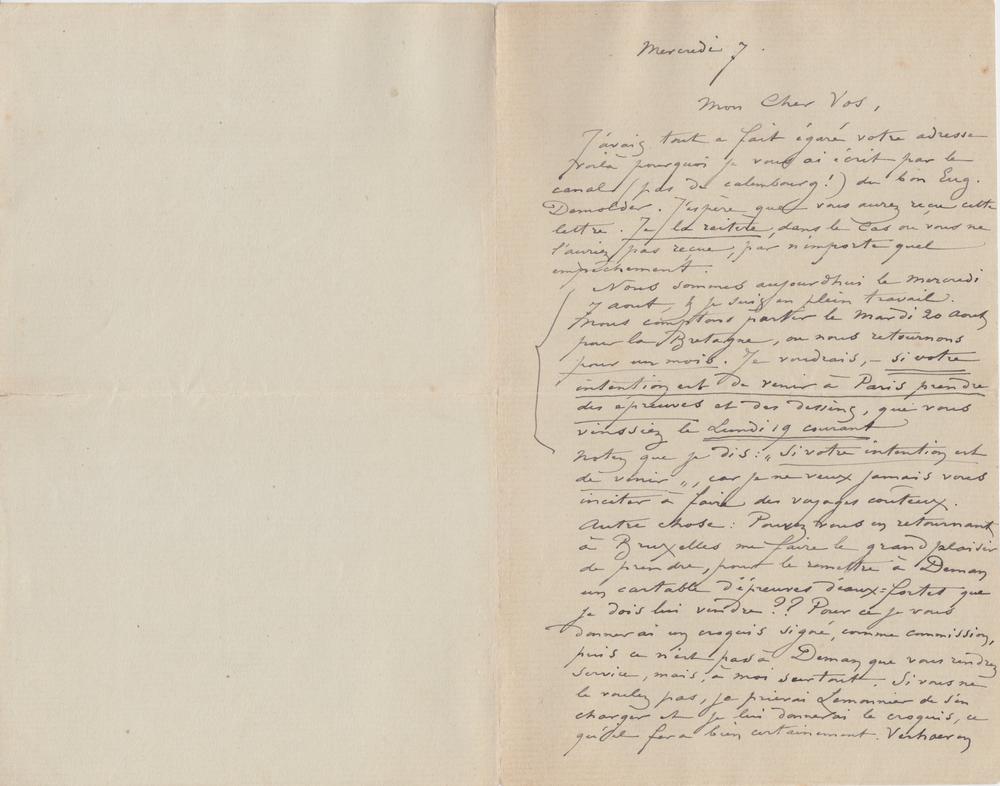 Mercredi 7.
Mon Cher Vos,
J'avais tout a fait égaré votre adresse
voilà pourquoi je vous ai écrit par le
canal (pas de calembourg!) du bon Eug.
Demolder. J'espère que vous aurez reçu cette
lettre. Je la réitère, dans le cas où vous ne
l'auriez pas reçue, par n'importe quel
empêchement.
Nous sommes aujourdhui le mercredi
7 aout, & je suis en plein travail.
Nous comptons partir le Mardi 20 Aout
pour la Bretagne, ou nous retournons
pour un mois. Je voudrais, – si votre
intention est de venir à Paris prendre
des épreuves et des dessins, que vous
vinssiez le Lundi 19 courant
Notez que je dis: „Si votre intention est
de venir„, car je ne veux jamais vous
inciter à faire des voyages coûteux.
Autre chose: Pouvez vous en retournant
à Bruxelles me faire le grand plaisir
de prendre, pour le remettre à Deman
un cartable d'épreuves d'eaux=fortes que
je dois lui vendre?? Pour ce je vous
donnerai un croquis signé, comme commission,
puis ce n'est pas à Deman que vous rendrez
service, mais, à moi surtout. Si vous ne
le voulez pas, je prierai Lemonnier de s'en
charger et je lui donnerai le croquis, ce
qu'il fera bien certainement. Verhaeren